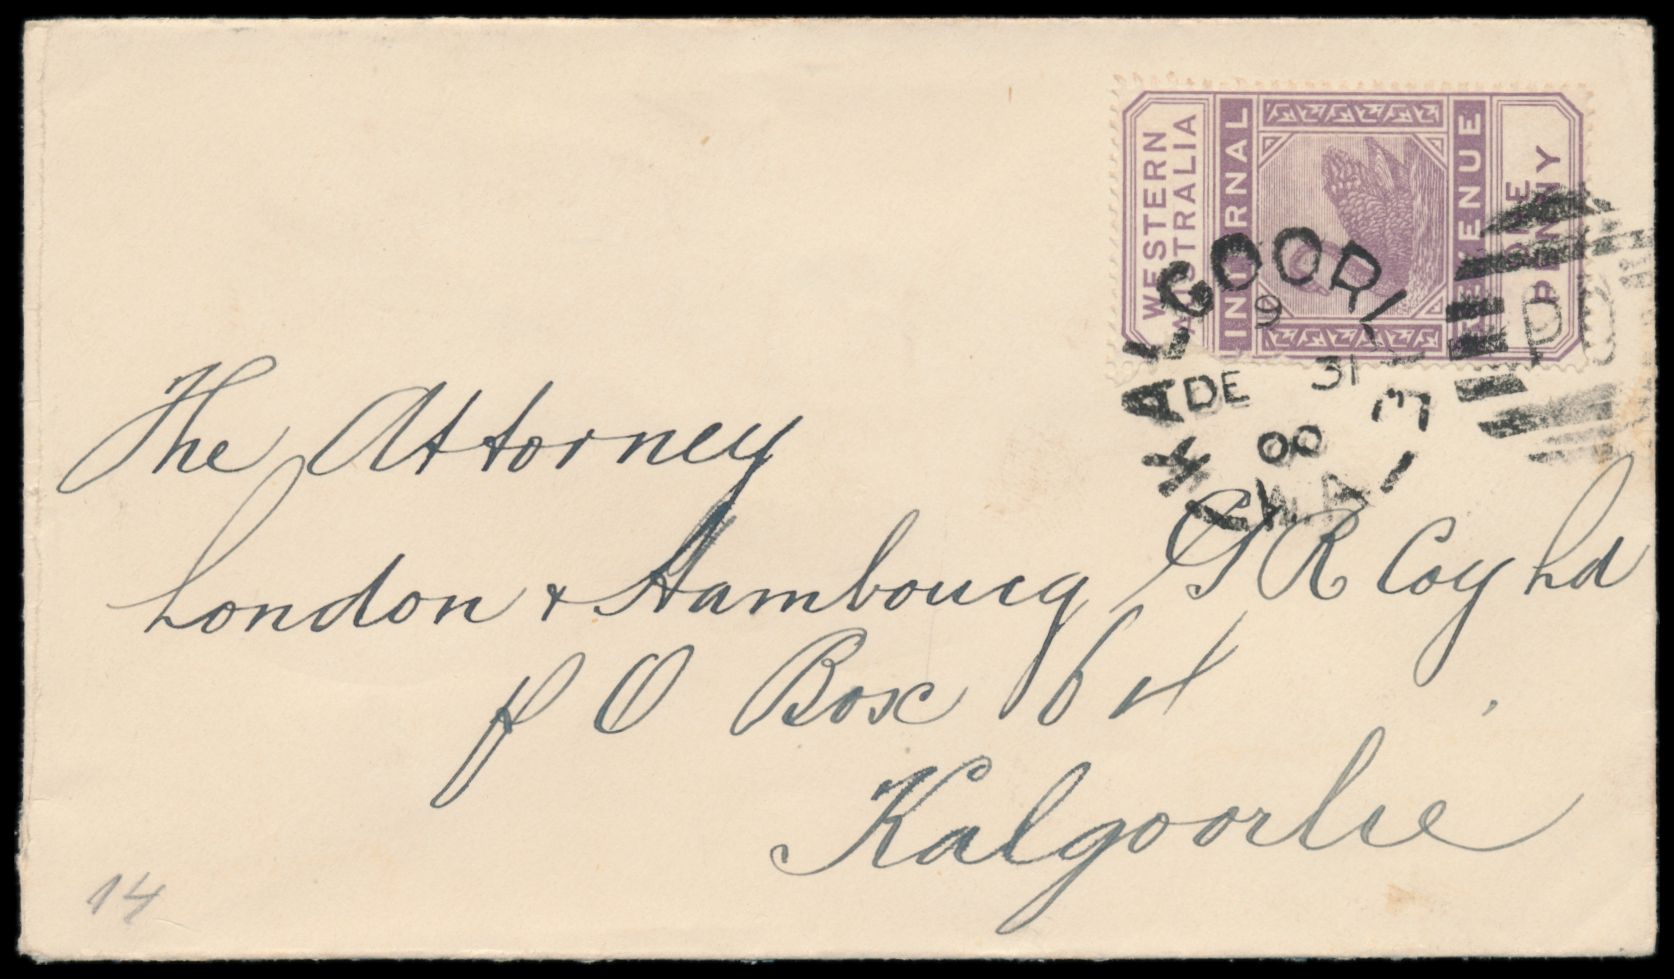 WESTERN
AUSTRALIA
INTERNAL
REVENUE
ONE
PENNY
KALGOORLIE
9
DE 31
00
W.A
PO
The Attorney
London & Hambourg G R Coy Ld
P O Box 64
Kalgoorlie
14